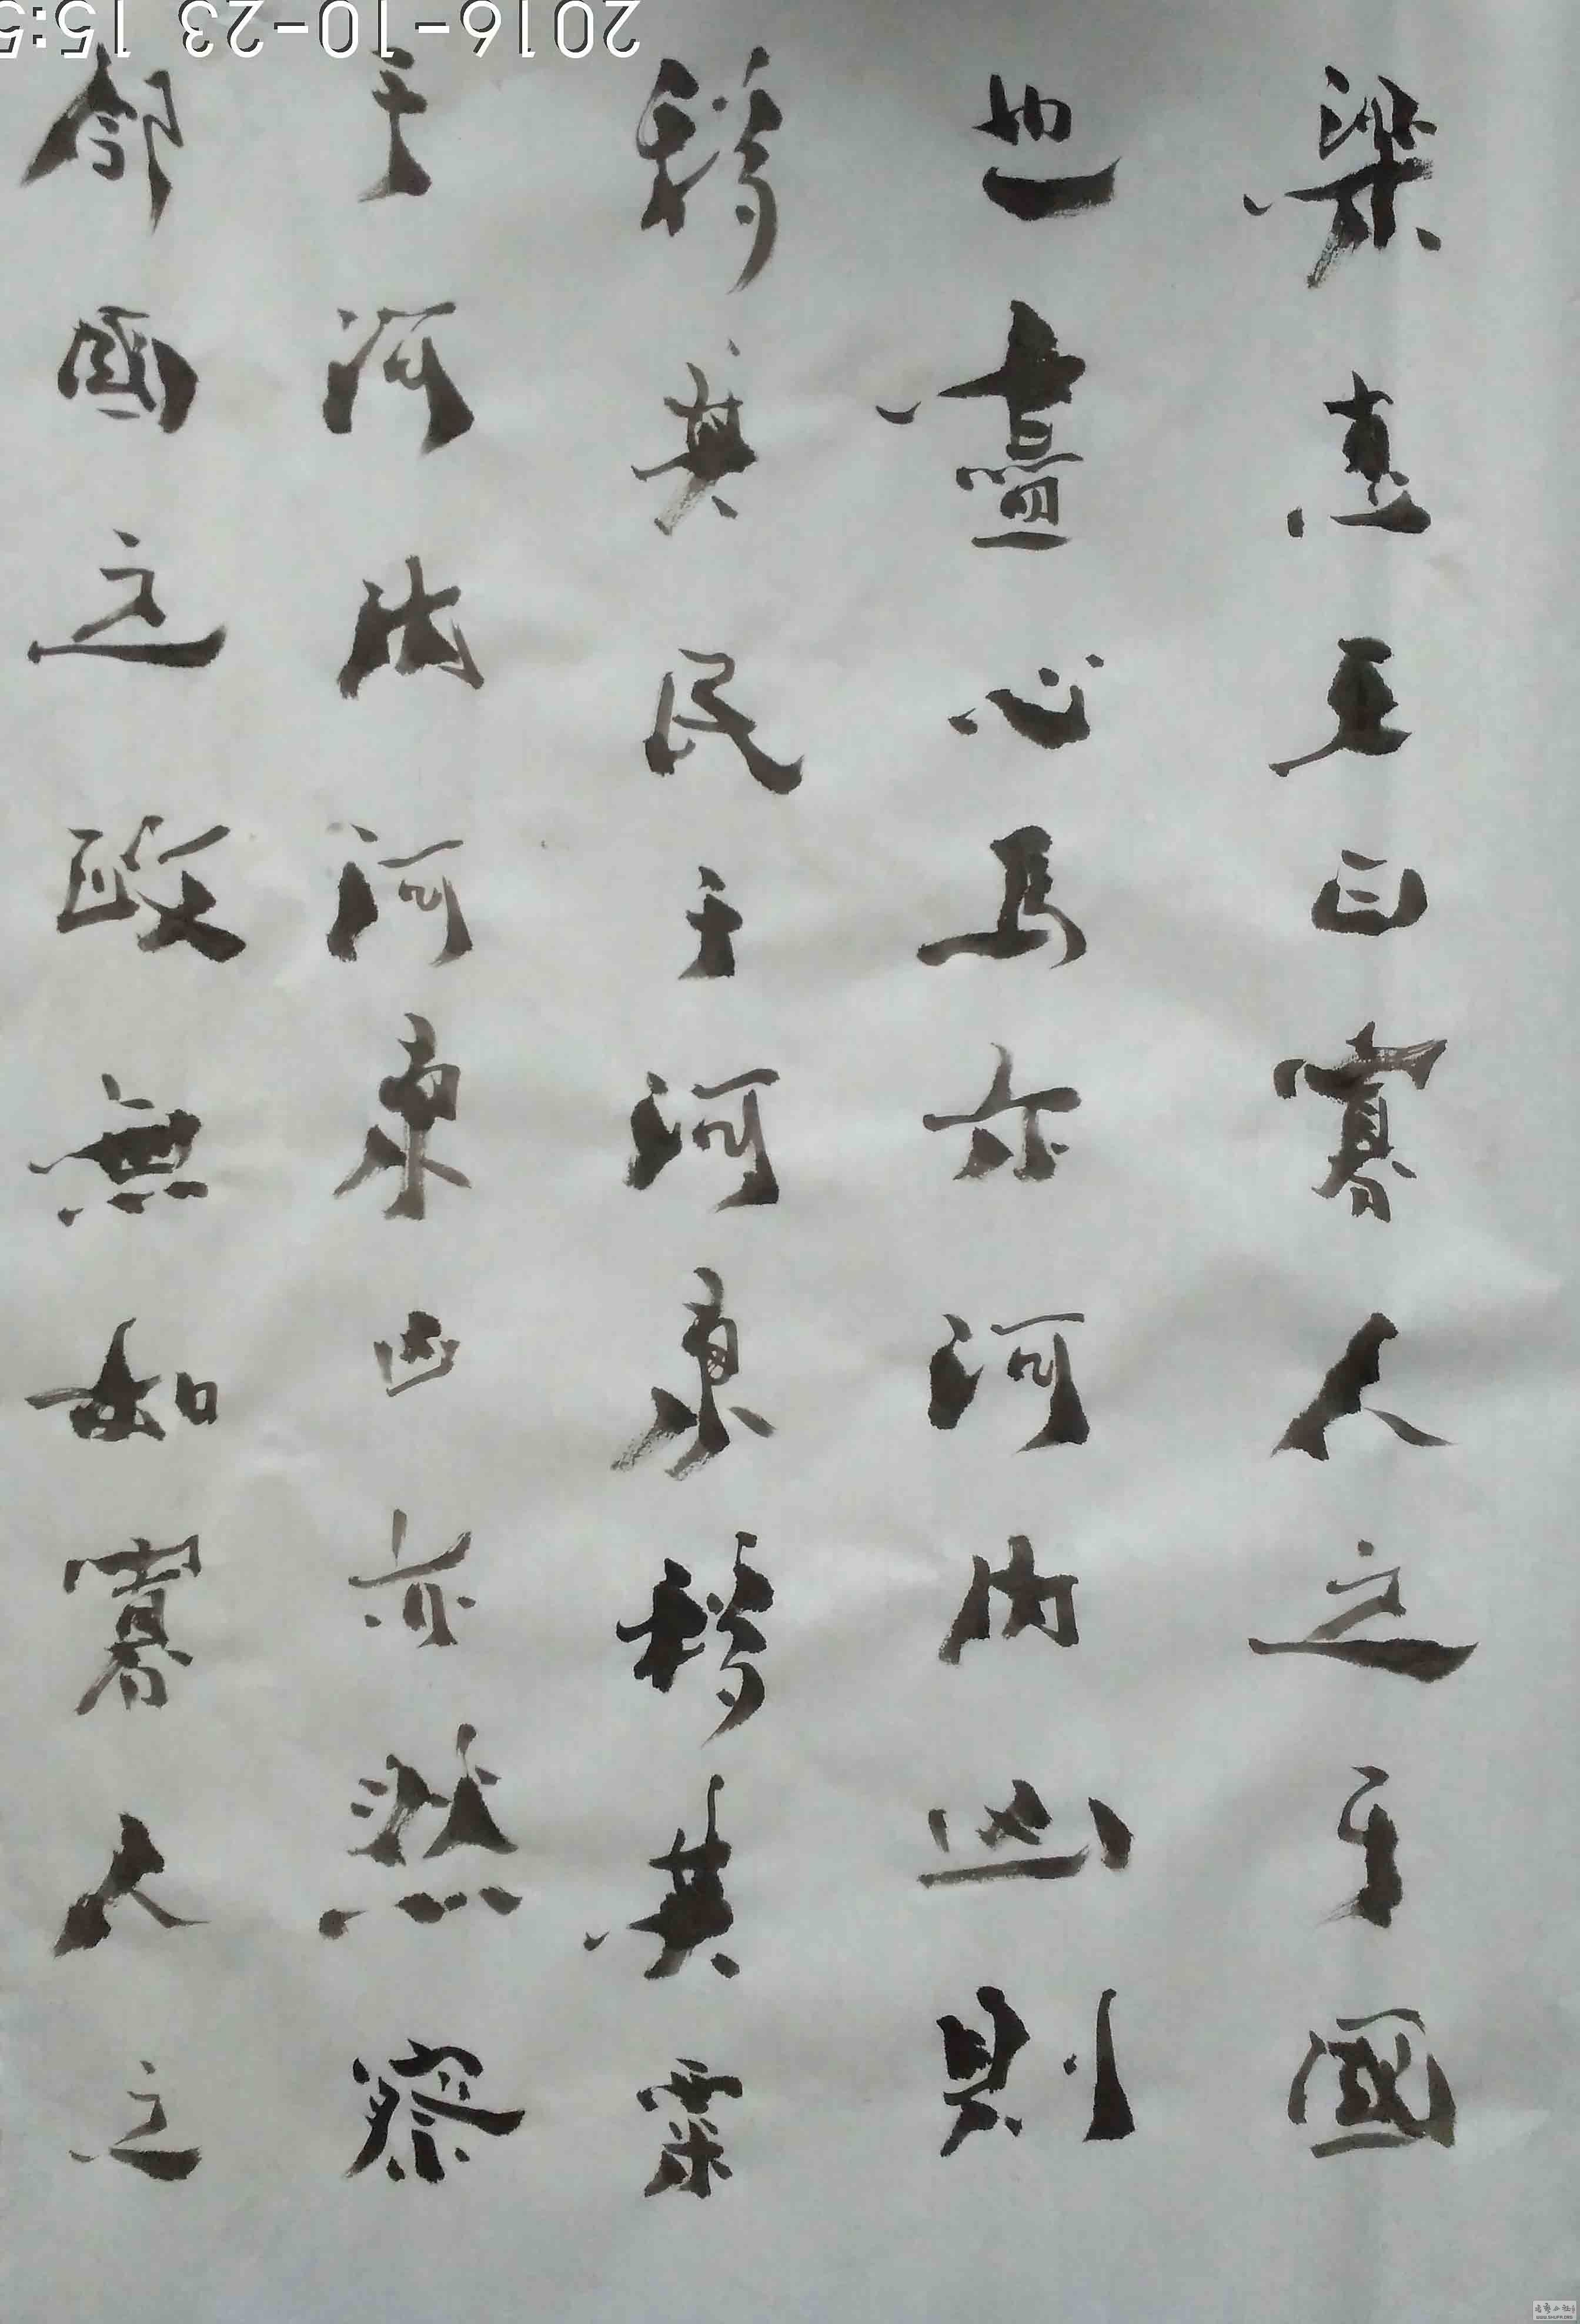 梁惠王曰寡人之于國
也盡心焉尔河内凶則
移其民于河東移其粟
于河内河東凶亦然察
鄰國之政無如寡人之
2016-10-23 15:5